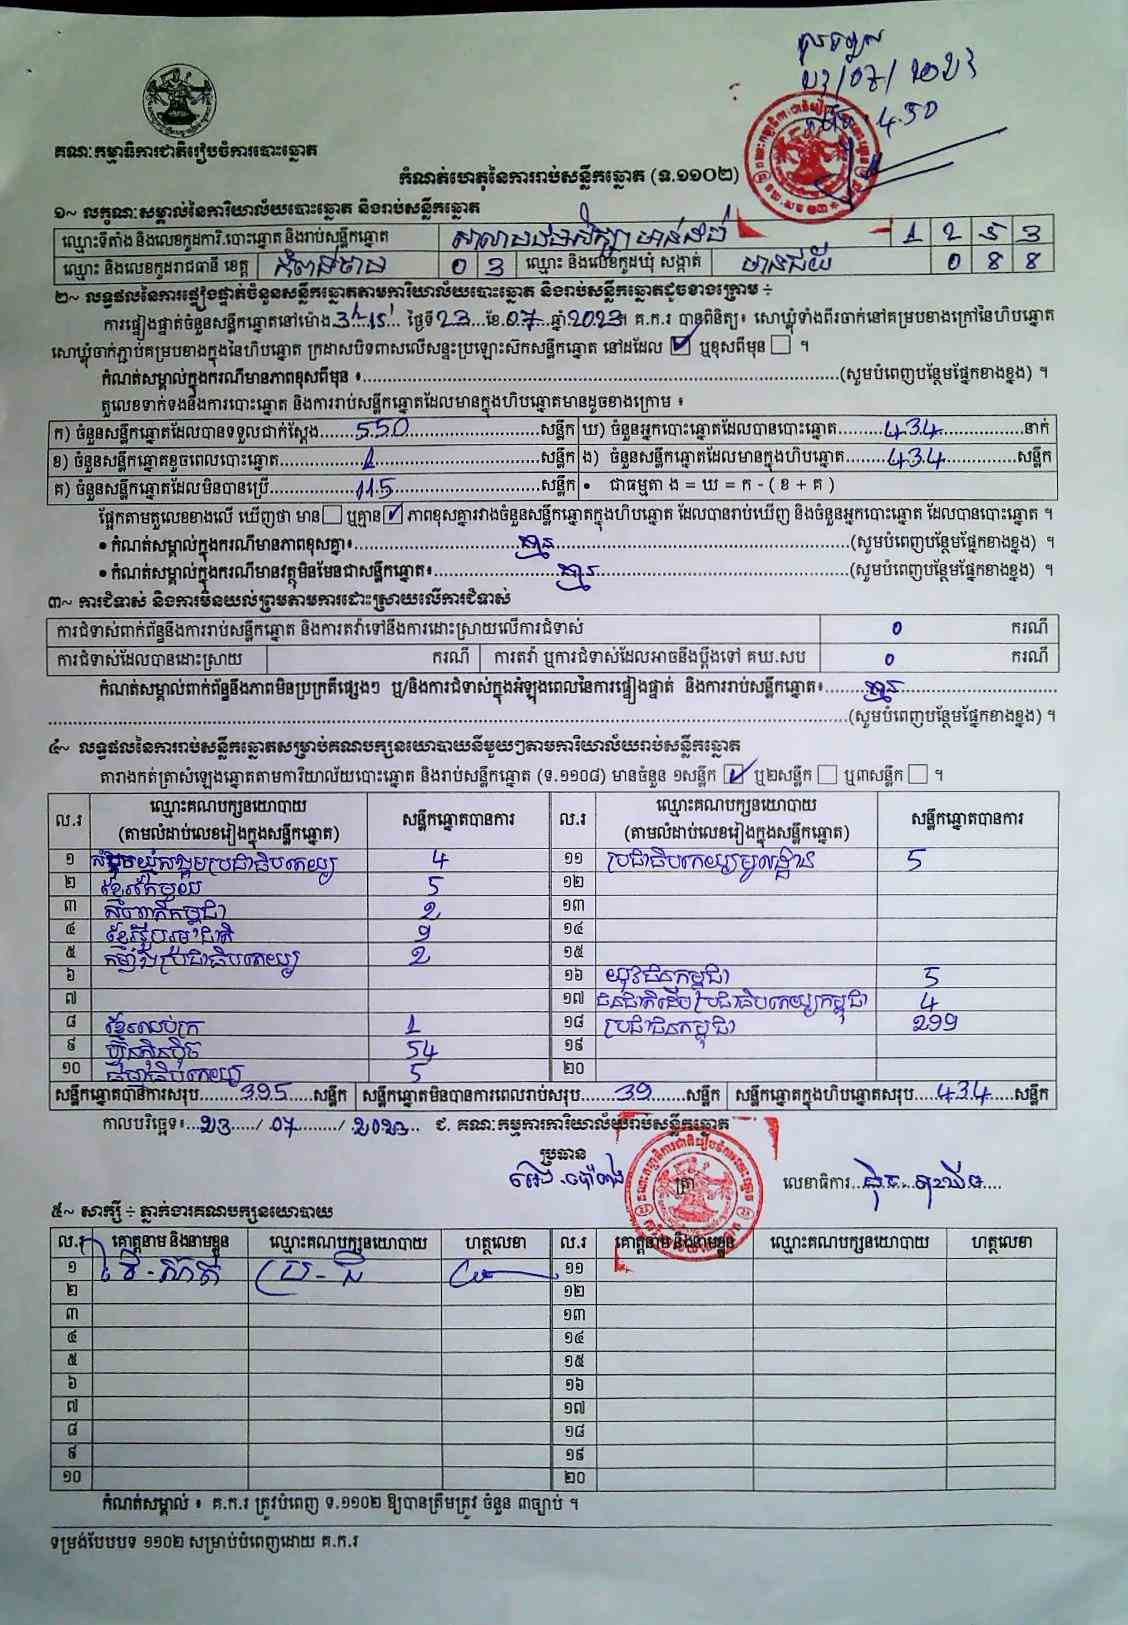 គណៈកម្មាធិការជាតិរៀបចំការបោះឆ្នោត
កំណត់ហេតុនៃការរាប់សន្លឹកឆ្នោត (ទ.១១០២)
4.30
១~ លក្ខណៈសម្គាល់នៃការិយាល័យបោះឆ្នោត និងរាប់សន្លឹកឆ្នោត
ឈ្មោះទីតាំង និងលេខកូដការិ.បោះឆ្នោត និងរាប់សន្លឹកឆ្នោត សាលាបឋមសិក្សា 1 2 5 3
ឈ្មោះ និងលេខកូដរាជធានី ខេត្ត កំពង់ចាម 0 3 ឈ្មោះ និងលេខកូដឃុំ សង្កាត់ មានជ័យ 0 8 8
២~ លទ្ធផលនៃការផ្ទៀងផ្ទាត់ចំនួនសន្លឹកឆ្នោតតាមការិយាល័យបោះឆ្នោត និងរាប់សន្លឹកឆ្នោតដូចខាងក្រោម ÷
ការផ្ទៀងផ្ទាត់ចំនួនសន្លឹកឆ្នោតនៅម៉ោង 3h 15' ថ្ងៃទី 23 ខែ 07 ឆ្នាំ 2023។ គ.ក.រ បានពិនិត្យ៖ សោឃ្លុំទាំងពីរចាក់នៅគម្របខាងក្រៅនៃហិបឆ្នោត
សោឃ្លុំចាក់ភ្ជាប់គម្របខាងក្នុងនៃហិបឆ្នោត ក្រដាសបិទពាសលើសន្ទះប្រឡោះស៊កសន្លឹកឆ្នោត នៅដដែល ☑ ឬខុសពីមុន ☐ ។
កំណត់សម្គាល់ក្នុងករណីមានភាពខុសពីមុន ៖...(សូមបំពេញបន្ថែមផ្នែកខាងខ្នង) ។
តួលេខទាក់ទងនឹងការបោះឆ្នោត និងការរាប់សន្លឹកឆ្នោតដែលមានក្នុងហិបឆ្នោតមានដូចខាងក្រោម ៖
ក) ចំនួនសន្លឹកឆ្នោតដែលបានទទួលជាក់ស្តែង...550...សន្លឹក ឃ) ចំនួនអ្នកបោះឆ្នោតដែលបានបោះឆ្នោត...434...នាក់
ខ) ចំនួនសន្លឹកឆ្នោតខូចពេលបោះឆ្នោត...1...សន្លឹក ង) ចំនួនសន្លឹកឆ្នោតដែលមានក្នុងហិបឆ្នោត...434...សន្លឹក
គ) ចំនួនសន្លឹកឆ្នោតដែលមិនបានប្រើ...115...សន្លឹក • ជាធម្មតា ង = ឃ = ក - ( ខ + គ )
ផ្អែកតាមតួលេខខាងលើ ឃើញថា មាន ☐ ឬគ្មាន ☑ ភាពខុសគ្នារវាងចំនួនសន្លឹកឆ្នោតក្នុងហិបឆ្នោត ដែលបានរាប់ឃើញ និងចំនួនអ្នកបោះឆ្នោត ដែលបានបោះឆ្នោត ។
• កំណត់សម្គាល់ក្នុងករណីមានភាពខុសគ្នា៖...គ្មាន...(សូមបំពេញបន្ថែមផ្នែកខាងខ្នង) ។
• កំណត់សម្គាល់ក្នុងករណីមានវត្ថុមិនមែនជាសន្លឹកឆ្នោត៖...គ្មាន...(សូមបំពេញបន្ថែមផ្នែកខាងខ្នង) ។
៣~ ការជំទាស់ និងការមិនយល់ព្រមតាមការដោះស្រាយលើការជំទាស់
ការជំទាស់ពាក់ព័ន្ធនឹងការរាប់សន្លឹកឆ្នោត និងការតវ៉ាទៅនឹងការដោះស្រាយលើការជំទាស់ 0 ករណី
ការជំទាស់ដែលបានដោះស្រាយ ករណី ការតវ៉ា ឬការជំទាស់ដែលអាចនឹងប្តឹងទៅ គឃ.សប 0 ករណី
កំណត់សម្គាល់ពាក់ព័ន្ធនឹងភាពមិនប្រក្រតីផ្សេងៗ ឬ/និងការជំទាស់ក្នុងអំឡុងពេលនៃការផ្ទៀងផ្ទាត់ និងការរាប់សន្លឹកឆ្នោត៖...គ្មាន...
...(សូមបំពេញបន្ថែមផ្នែកខាងខ្នង) ។
៤~ លទ្ធផលនៃការរាប់សន្លឹកឆ្នោតសម្រាប់គណបក្សនយោបាយនីមួយៗតាមការិយាល័យរាប់សន្លឹកឆ្នោត
តារាងកត់ត្រាសំឡេងឆ្នោតតាមការិយាល័យបោះឆ្នោត និងរាប់សន្លឹកឆ្នោត (ទ.១១០៨) មានចំនួន ១សន្លឹក ☑ ឬ២សន្លឹក ☐ ឬ៣សន្លឹក ☐ ។
ល.រ ឈ្មោះគណបក្សនយោបាយ (តាមលំដាប់លេខរៀងក្នុងសន្លឹកឆ្នោត) សន្លឹកឆ្នោតបានការ ល.រ ឈ្មោះគណបក្សនយោបាយ (តាមលំដាប់លេខរៀងក្នុងសន្លឹកឆ្នោត) សន្លឹកឆ្នោតបានការ
១ សំបុកឃ្មុំសង្គមប្រជាធិបតេយ្យ 4 ១១ ប្រជាធិបតេយ្យមូលដ្ឋាន 5
២ ខ្មែរតែមួយ 5 ១២
៣ សំរាត់កម្ពុជា 2 ១៣
៤ ខ្មែរ 9 ១៤
៥ កម្លាំងប្រជាធិបតេយ្យ 2 ១៥
៦ ១៦ យុវជនកម្ពុជា 5
៧ ១៧ ជនជាតិដើមប្រជាធិបតេយ្យកម្ពុជា 4
៨ ខ្មែរឈប់ក្រ 1 ១៨ ប្រជាជនកម្ពុជា 299
៩ ហ្វ៊ុនស៊ិនប៉ិច 54 ១៩
១០ ធម្មាធិបតេយ្យ 5 ២០
សន្លឹកឆ្នោតបានការសរុប...395...សន្លឹក សន្លឹកឆ្នោតមិនបានការពេលរាប់សរុប...39...សន្លឹក សន្លឹកឆ្នោតក្នុងហិបឆ្នោតសរុប...434...សន្លឹក
កាលបរិច្ឆេទ៖...23.../ 07.../ 2023.. ជ. គណៈកម្មការការិយាល័យរាប់សន្លឹកឆ្នោត
ប្រធាន
ត្រា លេខាធិការ
៥~ សាក្សី ÷ ភ្នាក់ងារគណបក្សនយោបាយ
ល.រ គោត្តនាម និងនាមខ្លួន ឈ្មោះគណបក្សនយោបាយ ហត្ថលេខា ល.រ គោត្តនាម និងនាមខ្លួន ឈ្មោះគណបក្សនយោបាយ ហត្ថលេខា
១ ប្រ - ជ ១១
២ ១២
៣ ១៣
៤ ១៤
៥ ១៥
៦ ១៦
៧ ១៧
៨ ១៨
៩ ១៩
១០ ២០
កំណត់សម្គាល់ ៖ គ.ក.រ ត្រូវបំពេញ ទ.១១០២ ឱ្យបានត្រឹមត្រូវ ចំនួន ៣ច្បាប់ ។
ទម្រង់បែបបទ ១១០២ សម្រាប់បំពេញដោយ គ.ក.រ